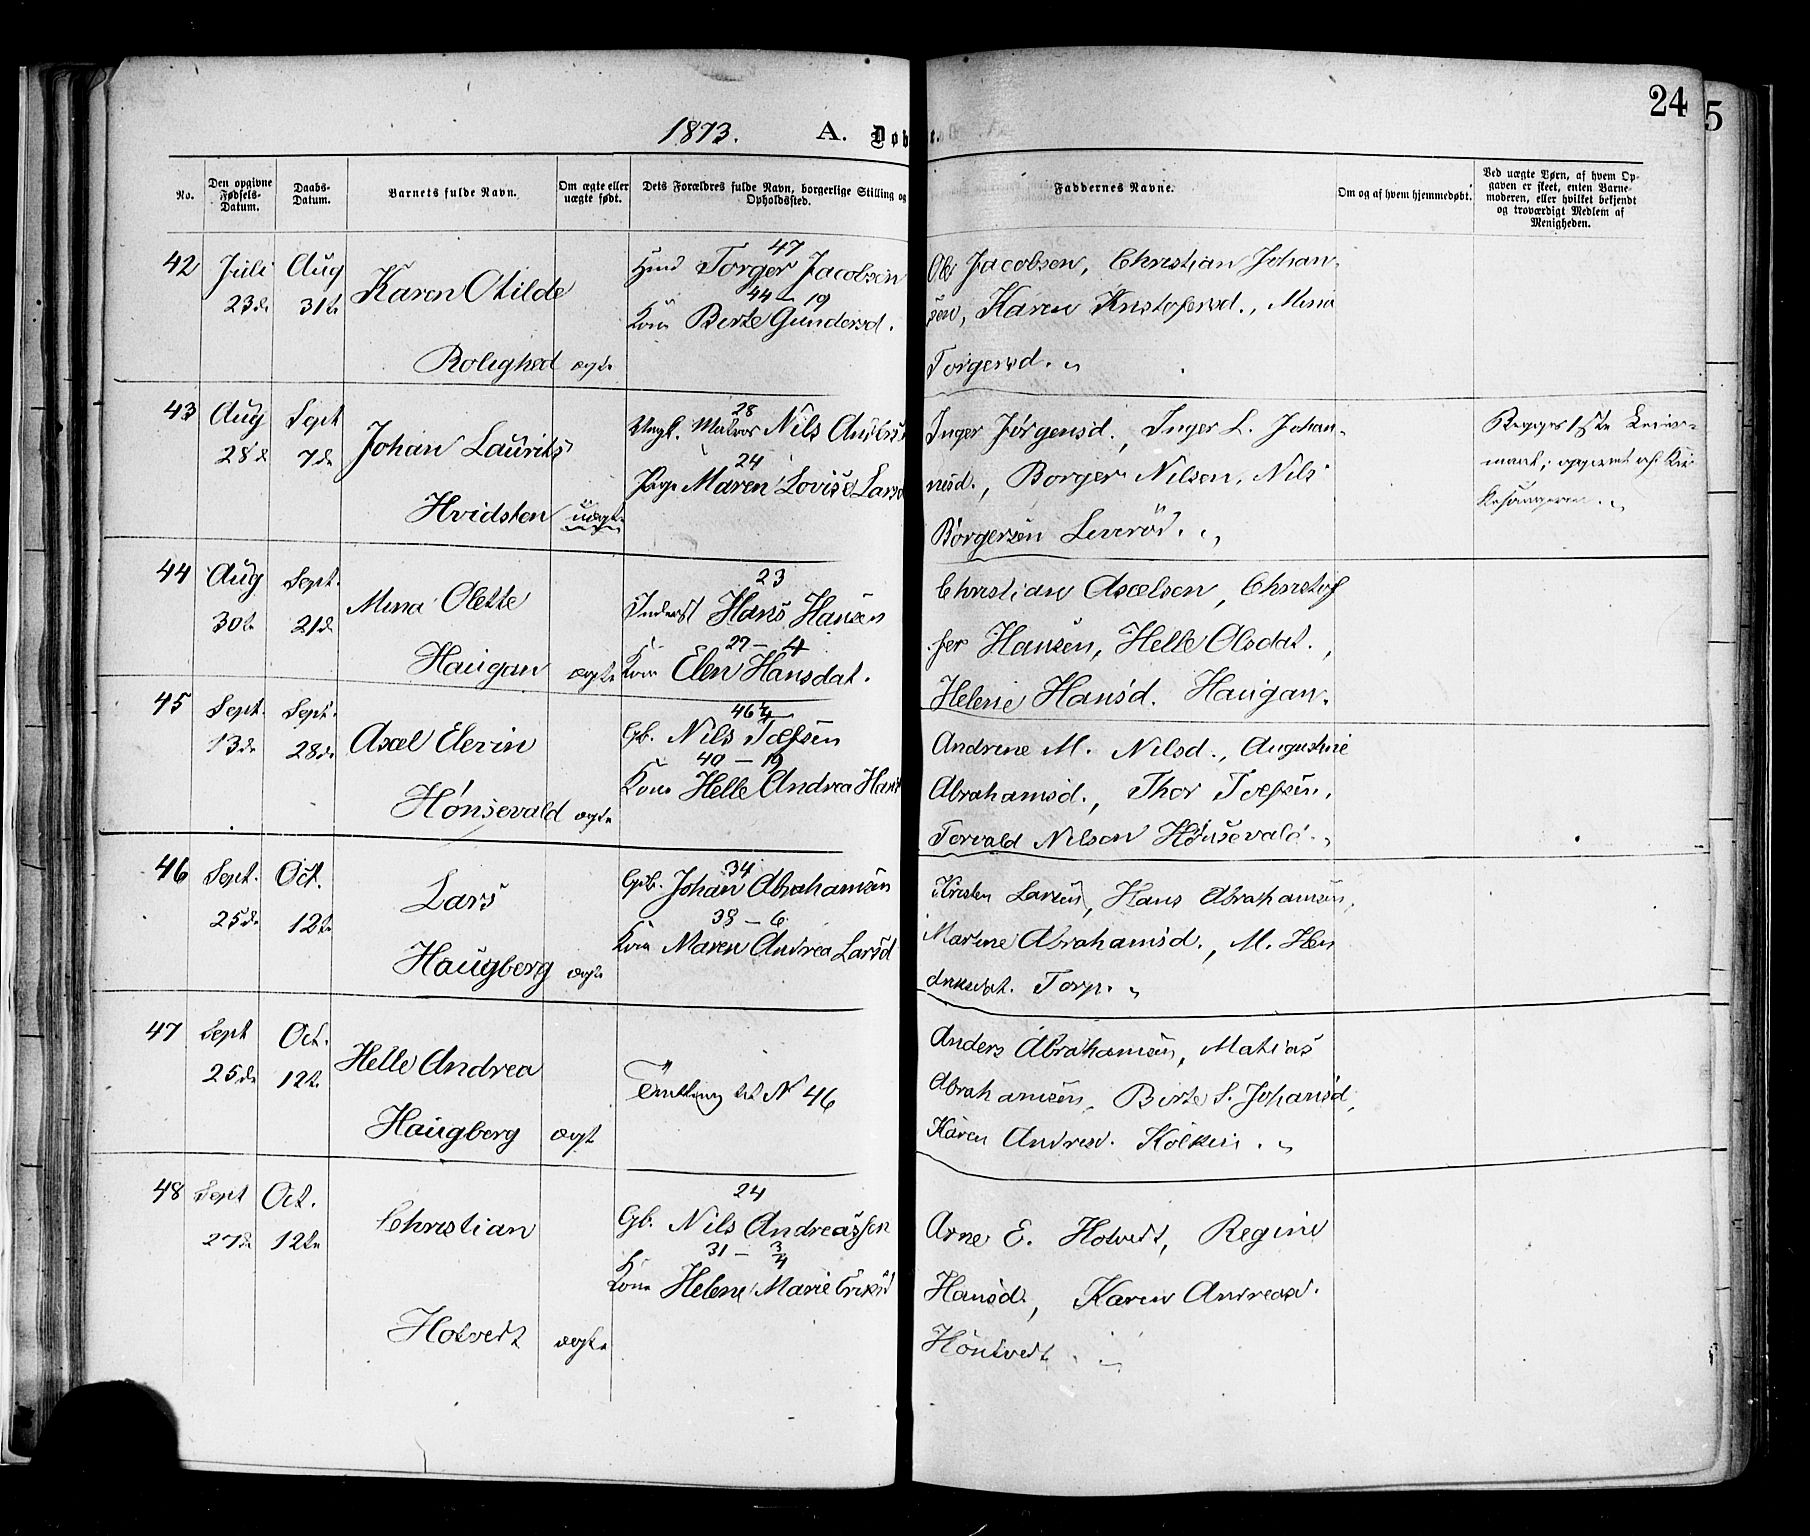 24
5
1873. A. Døb
No.
Den opgivne Fødsels-Datum.
Daabs-Datum.
Barnets fulde Navn.
Om ægte eller uægte født.
Dets Forældres fulde Navn, borgerlige Stilling og Opholdssted.
Faddernes Navne.
Om og af hvem hjemmedøbt.
Ved uægte Børn, af hvem Opgaven er skeet, enten Barnemoderen, eller hvilket bekjendt og troværdigt Medlem af Menigheden.
42 Juli 23de Aug 31te
Karen Otilde
Rolighed ægte
47
Hmd Torger Jacobsen
44 - 19
Kone Berte Gundersd.
Ole Jacobsen, Christian Johan-
sen, Karen Kristofersd., Mina
Torgersd. „
43 Aug 28de Sept 7de
Johan Laurits
Hvidsten uægte
28
Ungk. Matros Nils Anders
24
Pige Maren Lovise Larsd
Inger Jörgensd., Inger L. Johan-
nesd., Borger Nilsen, Nils
Börgersen Leveröd. „
Begges 1ste Leier-
maal; opgivet af Kir
kesangeren. „
44 Aug 30te Sept. 21de
Mina Olette
Haugan ægte
23
Inderst Hans Hansen
27 - 4
Kone Elen Hansdat.
Christian Axelsen, Christof
fer Hansen, Helle Olsdat.,
Helene Hansd. Haugan.
45 Sept. 13de Sept. 28de
Axel Elevin
Hönsevald ægte
46 4
Gb. Nils Tolfsen
40 - 19
Kone Helle Andrea Hans
Andrine M. Nilsd., Augustine
Abrahamsd., Thor Tolfsen,
Torvald Nilsen Hönsevald. „
46 Sept. 25de Oct. 12te
Lars
Haugberg ægte
34
Gb. Johan Abrahamsen
38 - 6
Kone Maren Andrea Larsd
Kristen Larsen, Hans Abrahamsen,
Martine Abrahamsd., M. Hen
driksdat. Torp. „
47 Sept 25de Oct. 12te
Helle Andrea
Haugberg ægt
Tvilling til N 46
Anders Abrahamsen, Matias
Abrahamsen, Berte S. Johansd,
Karen Andresd. „
48 Sept 27de Oct. 12te
Christian
Hotvedt ægte
24
Gb. Nils Andreassen
31 - 3/4
Kone Helene Marie Eriksd
Arne E. Hotvedt, Regine
Hansd., Karen Andreasd.
Hontvedt. „